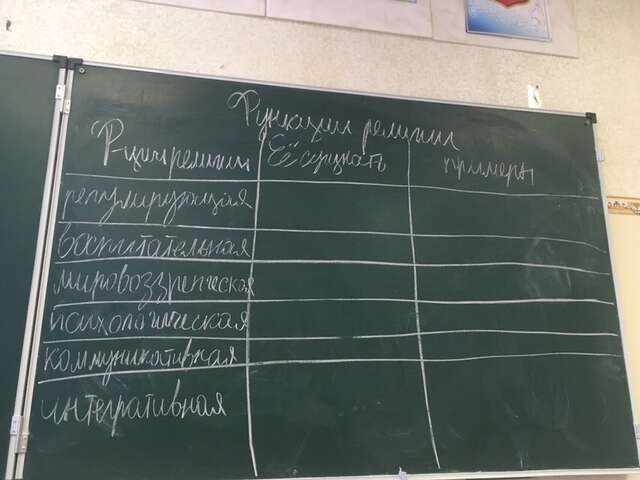 Функции религии
Ф-ции религии Её сущность примеры
регулирующая
воспитательная
мировоззренческая
психологическая
коммуникативная
интегративная